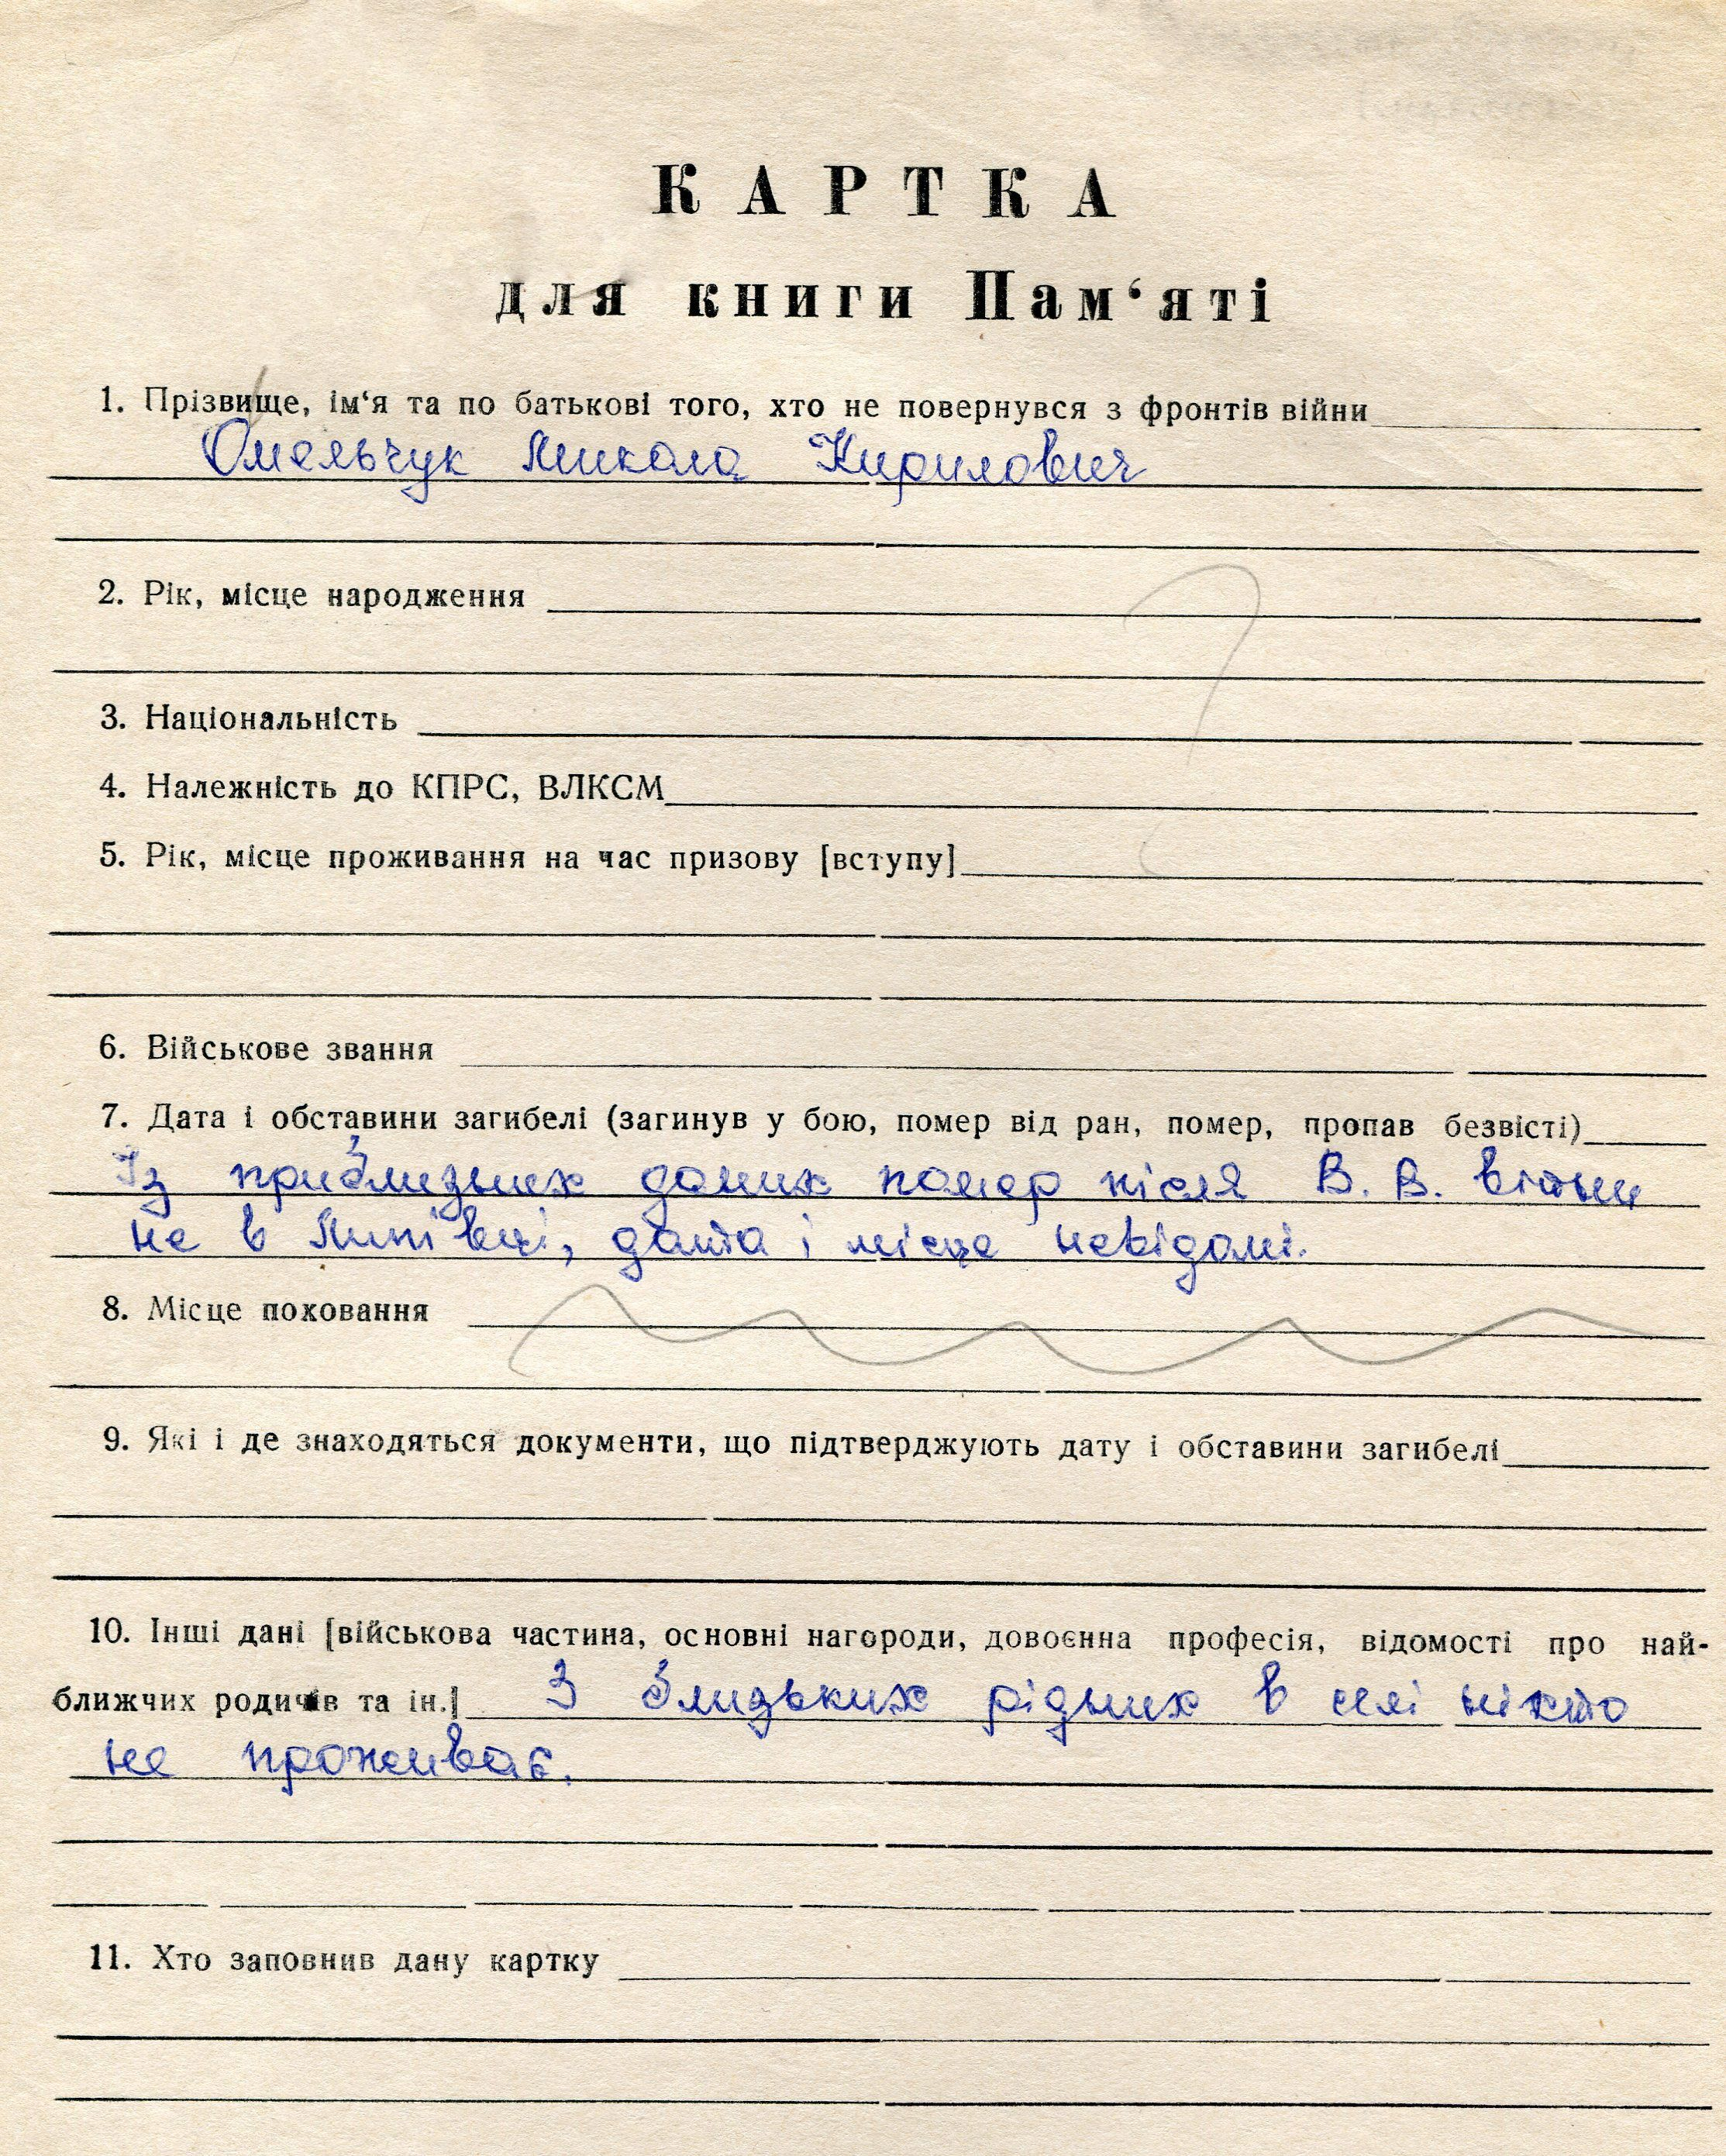 КАРТКА
для книги Пам‘яті
1. Прізвище, ім‘я та по батькові того, хто не повернувся з фронтів війни
Омельчук Микола Кирилович
2. Рік, місце народження
3. Національність
4. Належність до КПРС, ВЛКСМ
5. Рік, місце проживання на час призову [вступу]
6. Військове звання
7. Дата і обставини загибелі (загинув у бою, помер від ран, помер, пропав безвісті)
Із приблизьних даних помер після В. В. війни
не в Липівці, дата і місце невідомі.
8. Місце поховання
9. Які і де знаходяться документи, що підтверджують дату і обставини загибелі
10. Інші дані [військова частина, основні нагороди, довоєнна професія, відомості про най-
ближчих родичів та ін.] З близьких рідних в селі ніхто
не проживає.
11. Хто заповнив дану картку